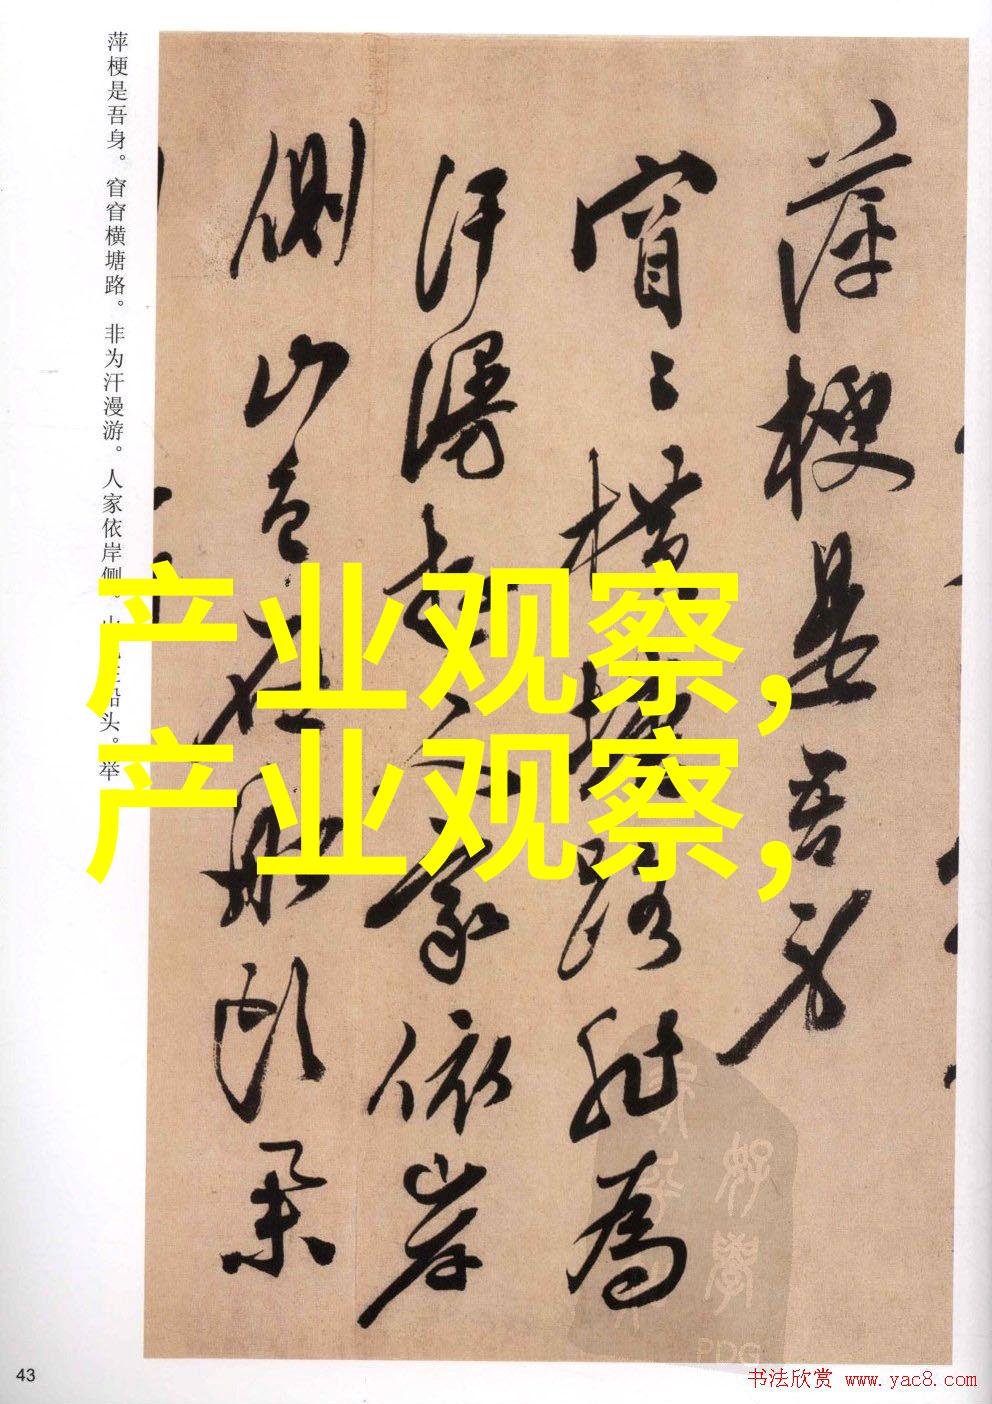 萍梗是吾身
窅〻橫塘路非為
汗漫遊人家依岸
側山色在船頭
萍梗是吾身。窅窅横塘路。非为汗漫游。人家依岸侧。船头。举
产业观察，
产业观察，
PDG
43
书法欣赏 www.yac8.com